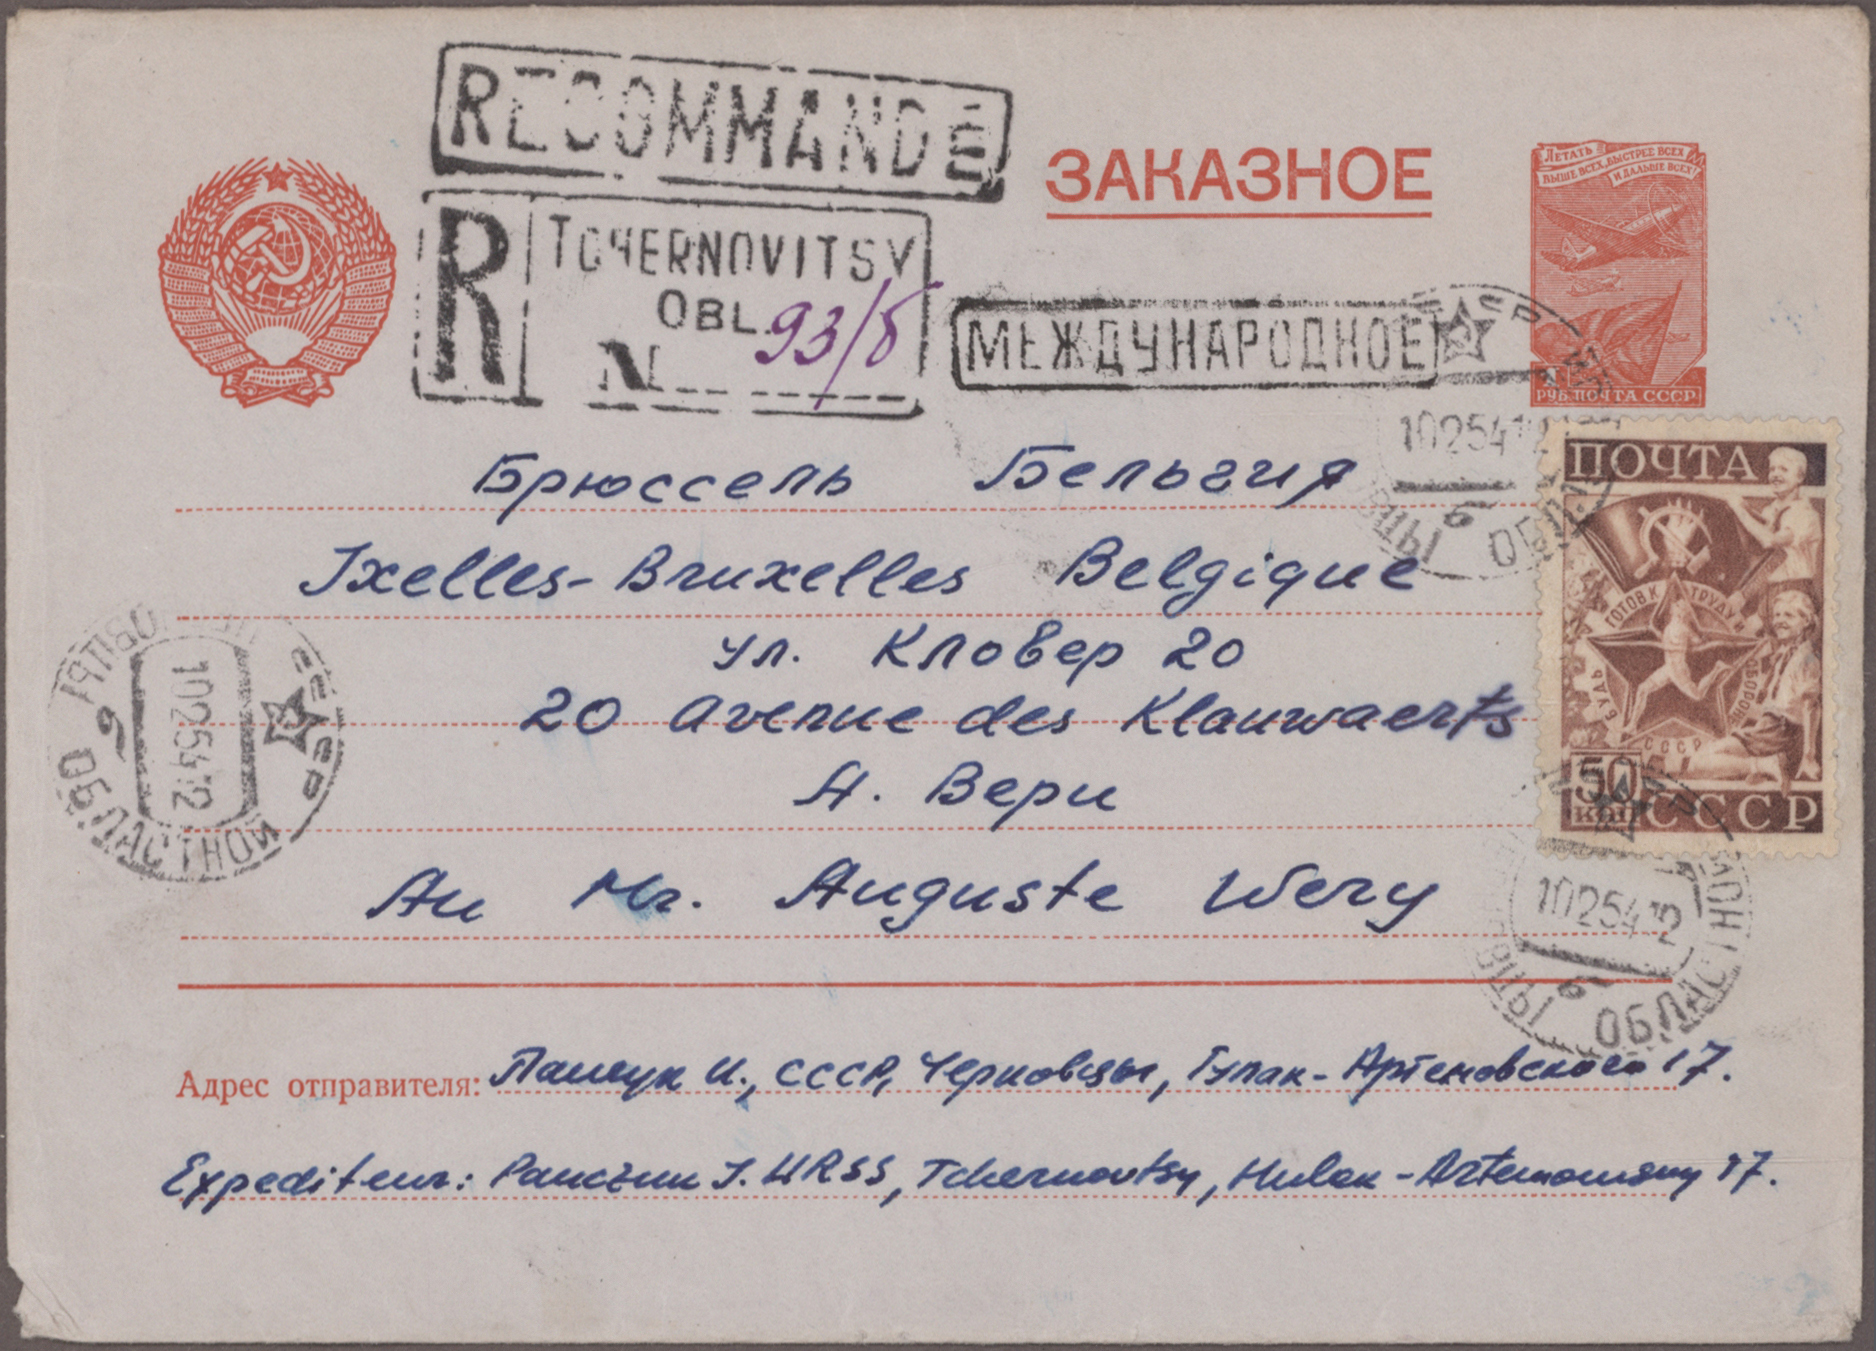 RECOMMANDÉ
ЗАКАЗНОЕ
ЛЕТАТЬ
ВЫШЕ ВСЕХ, БЫСТРЕЕ ВСЕХ
И ДАЛЬШЕ ВСЕХ!
R TCHERNOVITSY
OBL. 93/8
N
МЕЖДУНАРОДНОЕ
1 РУБ. ПОЧТА СССР
СССР
10 2 54 12
ОБЛ
6
ПОЧТА
БУДЬ ГОТОВ К ТРУДУ И ОБОРОНЕ
СССР
50 КОП СССР
Брюссель Бельгия
Ixelles-Bruxelles Belgique
ул. Кловер 20
20 avenue des Klauwaerts
А. Вери
Au Mr. Auguste Wery
СССР
10 2 54 12
6
ОБЛАСТНОЙ
10 2 54 12
6
ОБЛАСТНОЙ
Адрес отправителя: Пащук И., СССР, Черновцы, Гулак-Артемовского 17.
Expediteur: I. URSS, Tchernovtsy, Hulak- 17.